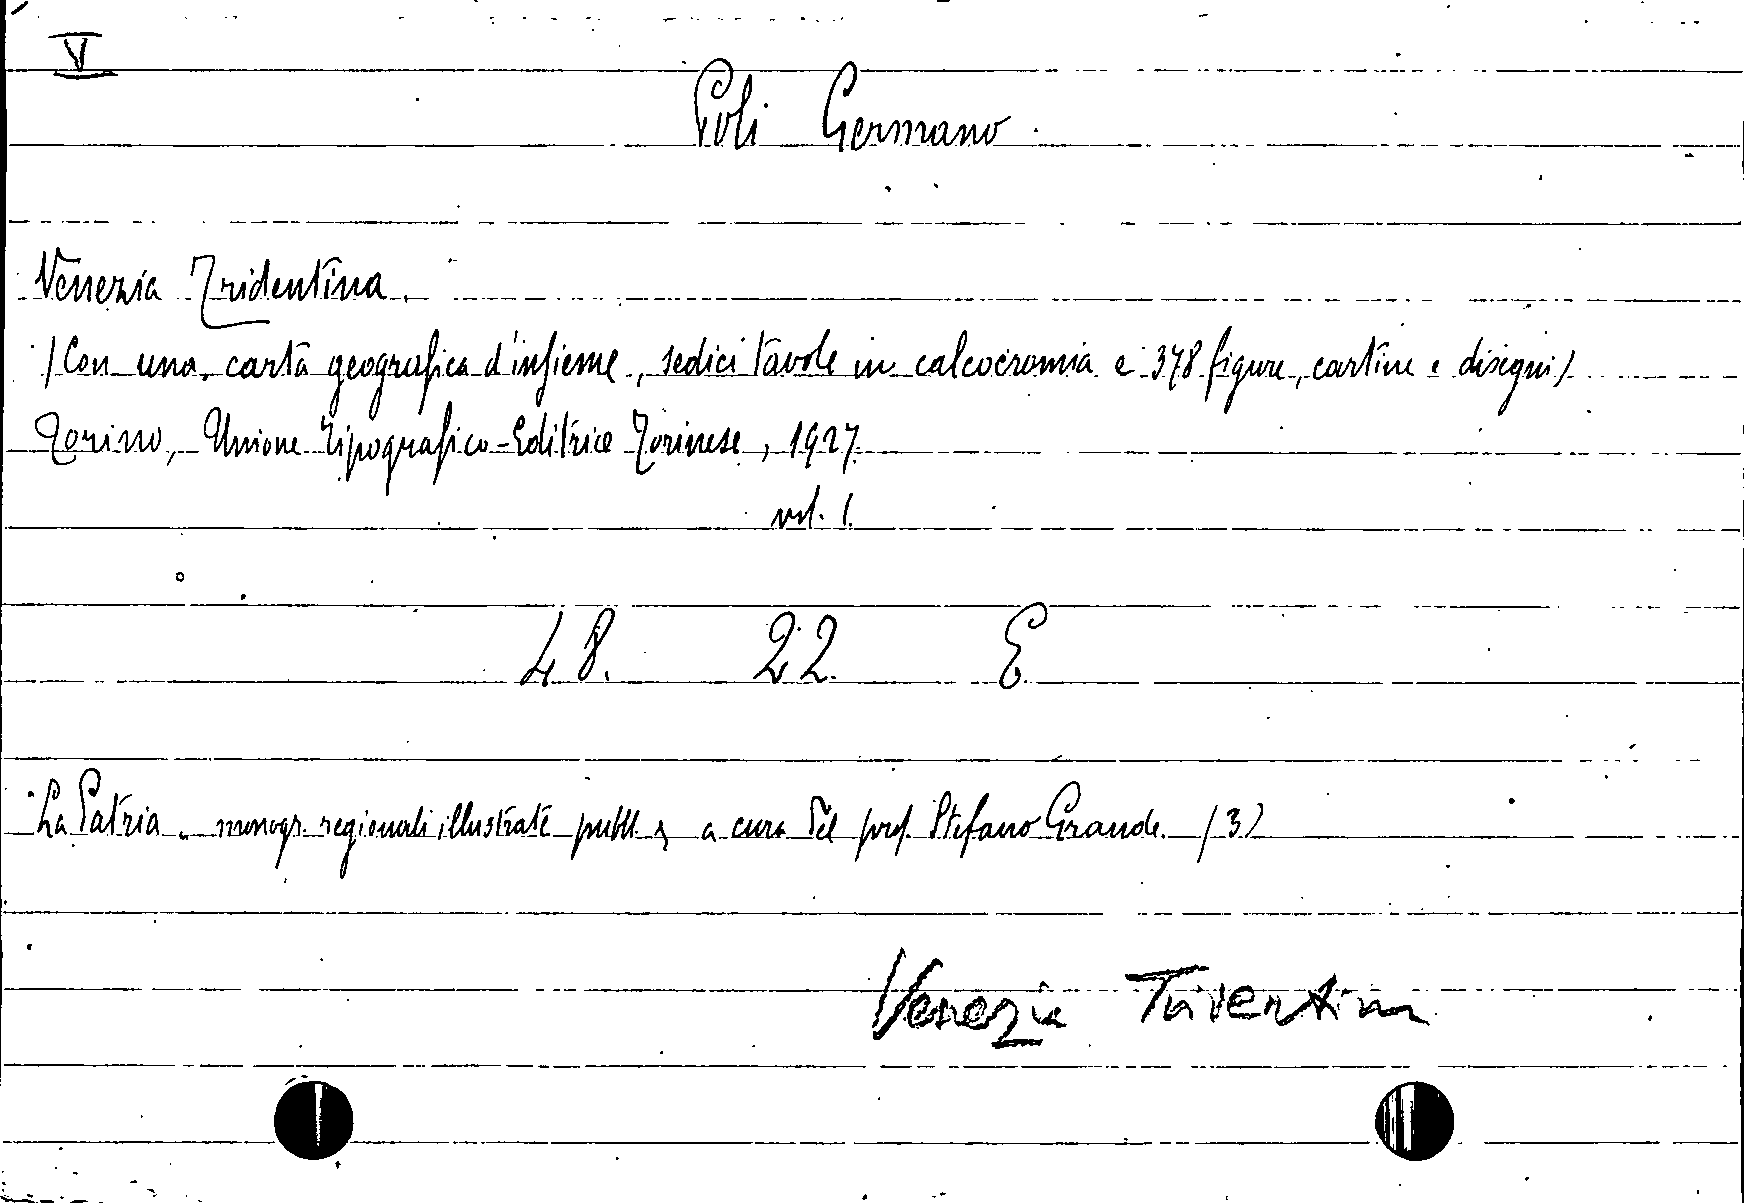 V
Poli Germano
Venezia Tridentina.
(Con una carta geografica d'insieme, sedici tavole in calcocromia e 378 figure, cartine e disegni)
Torino, Unione Tipografico-Editrice Torinese, 1927.
vol. 1.
48. 22. E
La Patria. monogr. regionali illustrate pubbl. a cura del prof. Stefano Grande. (3)
Venezia Triventina